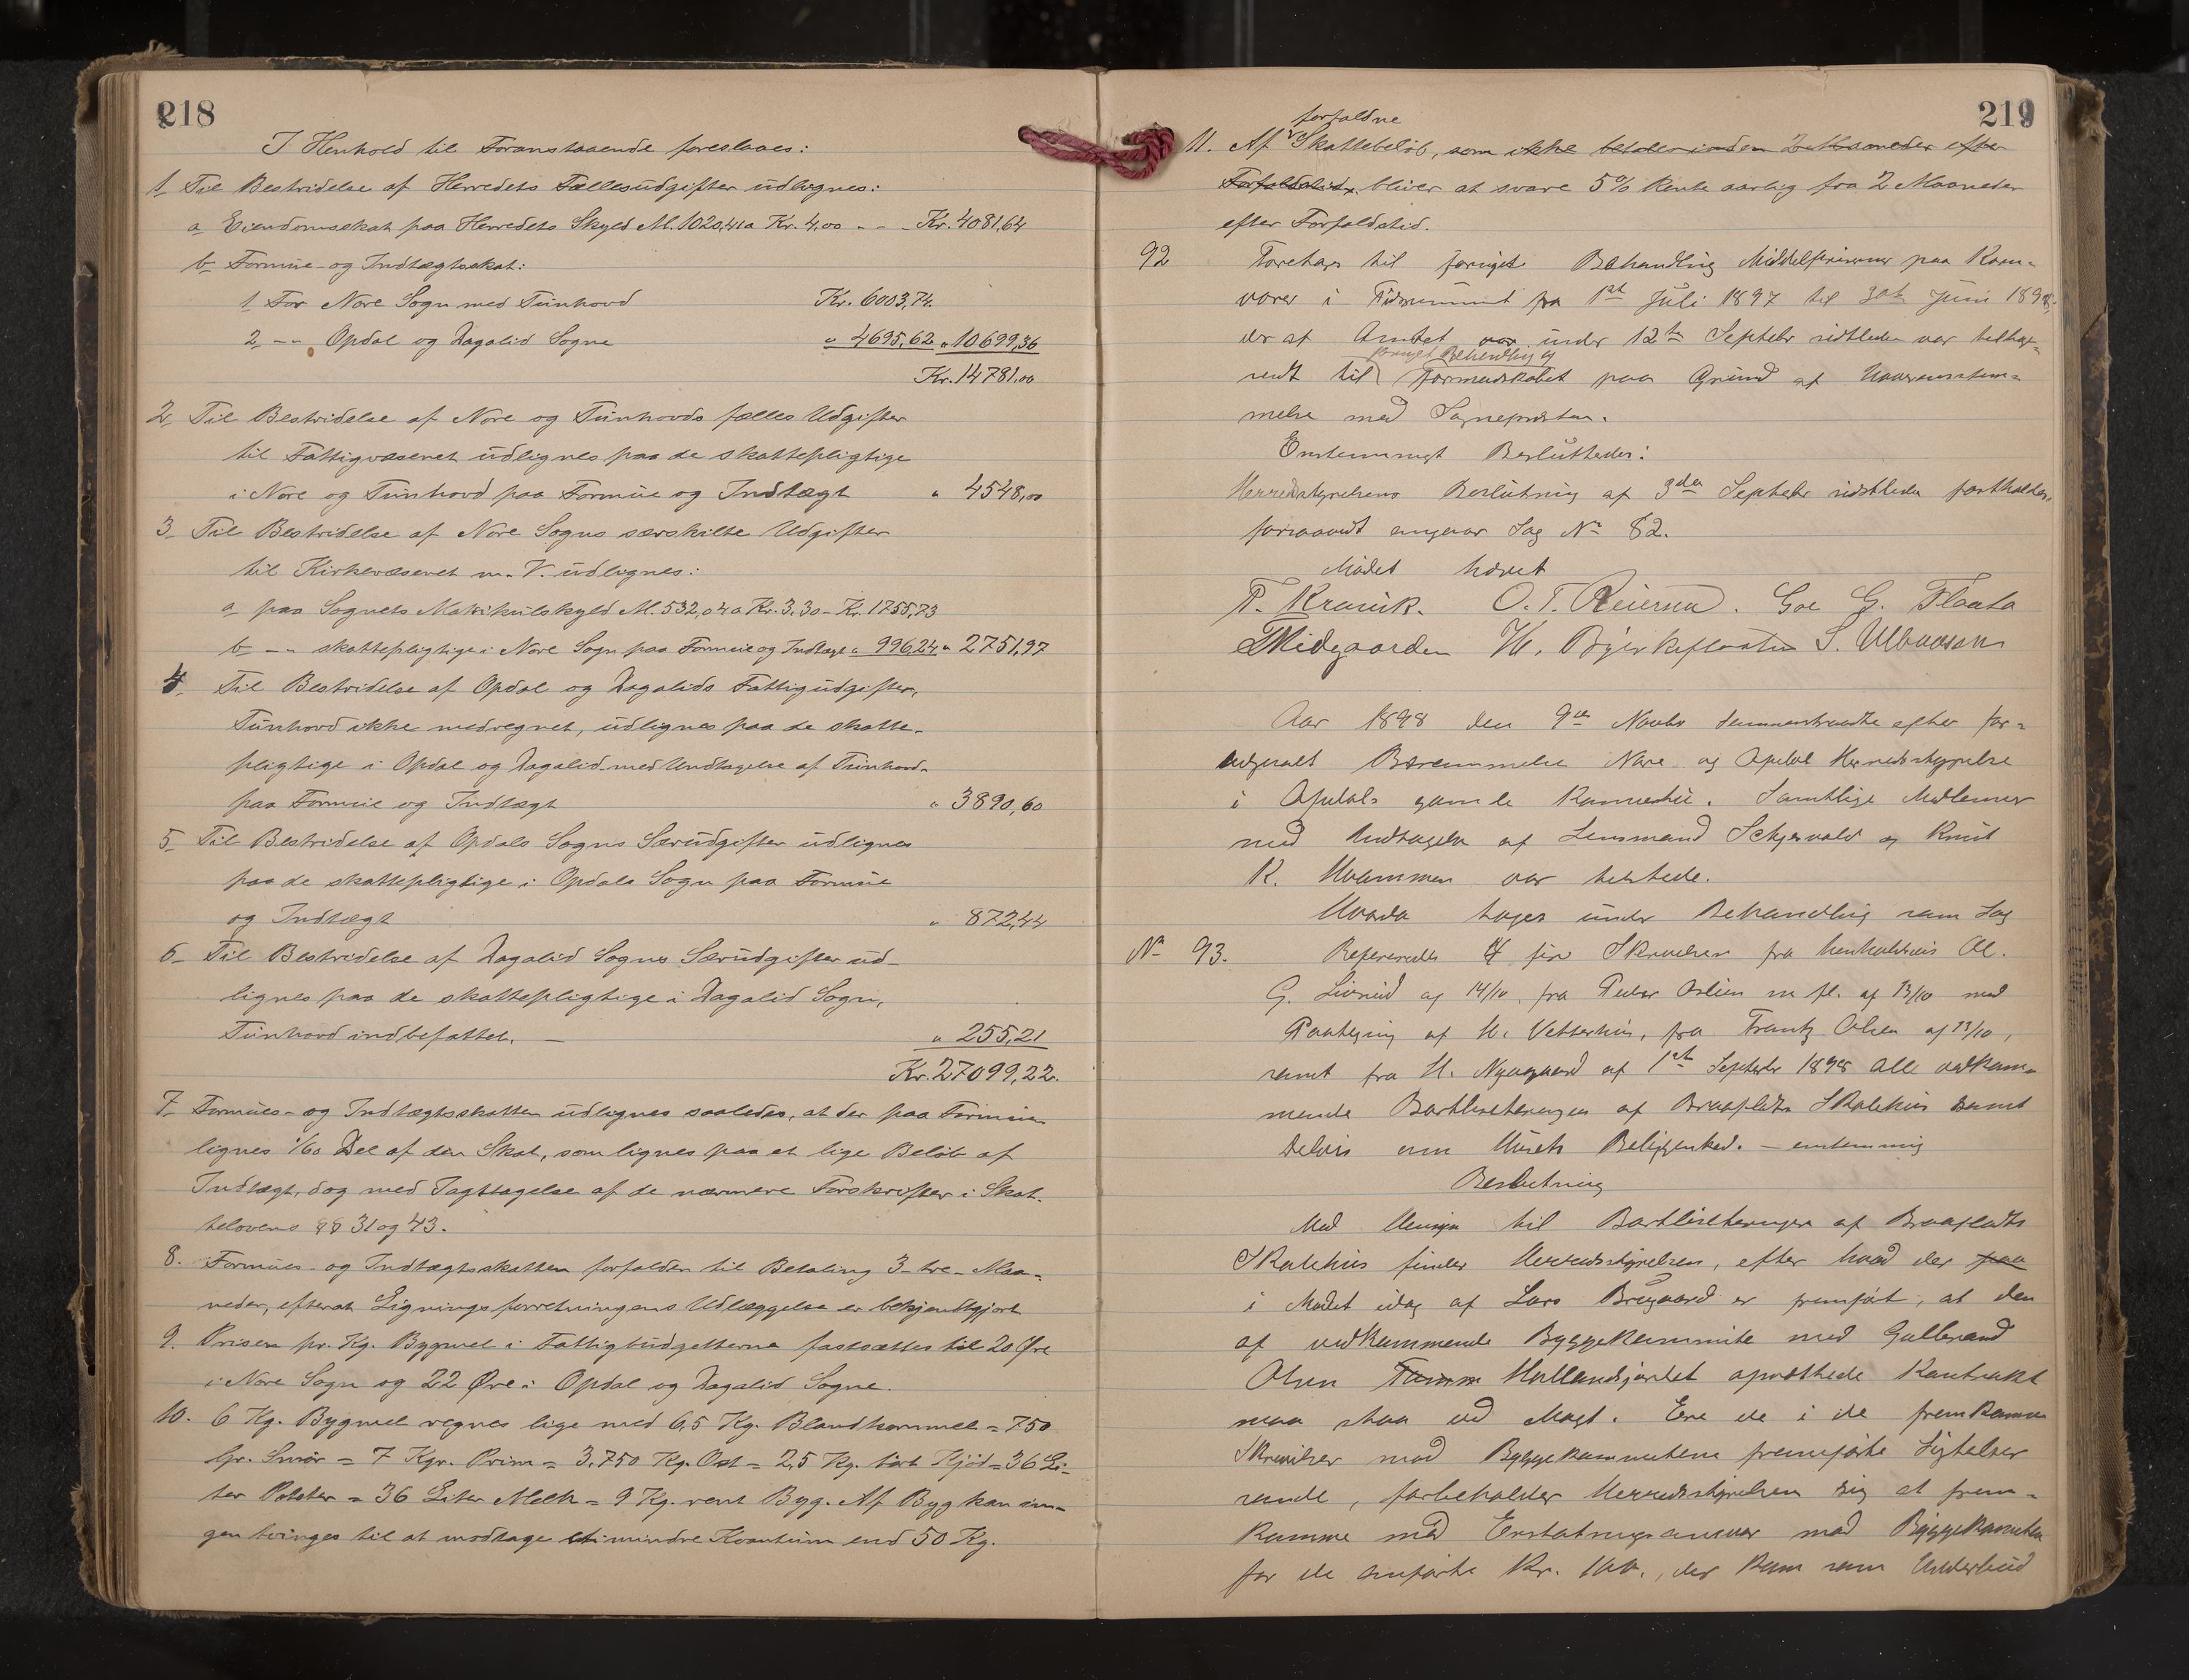 218
I Henhold til Foranstaaende foreslaaes:
1 Til Bestridelse af Herredets Fællesudgifter udlignes:
a Eiendomsskat paa Herredets Skyld M. 1020,41 a Kr. 4,00 - - - Kr. 4081,64
b Formue- og Indtægtsskat:
1 For Nore Sogn med Tunhovd Kr. 6003,74.
2, -"- Opdal og Dagalid Sogne " 4695,62 " 10699,36
Kr. 14781.00
2, Til Bestridelse af Nore og Tunhovds fælles Udgifter
til Fattigvæsenet udlignes paa de skattepligtige
i Nore og Tunhovd paa Formue og Indtægt " 4548,00
3 Til Bestridelse af Nore Sogns særskilte Udgifter
til Kirkevæsenet m. V. udlignes:
a paa Sognets Matrikulskyld M. 532,04 a Kr. 3.30 - Kr. 1755,73
b -"- skattepligtige i Nore Sogn paa Formue og Indtægt " 996,24 " 2751,97
4, Til Bestridelse af Opdal og Dagalids Fattigudgifter,
Tunhovd ikke medregnet, udlignes paa de skatte-
pligtige i Opdal og Dagalid med Undtagelse af Tunhovd-
paa Formue og Indtægt " 3890,60
5 Til Bestridelse af Opdals Sogns Særudgifter udlignes
paa de skattepligtige i Opdals Sogn paa Formue
og Indtægt " 872,44
6 Til Bestridelse af Dagalid Sogns Særudgifter ud-
lignes paa de skattepligtige i Dagalid Sogn,
Tunhovd indbefattet. — " 255,21
Kr. 27099,22.
7 Formues- og Indtægtsskatten udlignes saaledes, at der paa Formuen
lignes 1/60 Del af den Skat, som lignes paa et lige Beløb af
Indtægt, dog med Iagttagelse af de nærmere Forskrifter i Skat-
telovens §§ 31 og 43.
8. Formues- og Indtægtsskatten forfalder til Betaling 3 - tre - Maa-
neder, efterat Ligningsforretningens Udlæggelse er bekjendtgjort
9. Prisen pr. Kg. Bygmel i Fattigbudgetterne fastsættes til 20 Øre
i Nore Sogn og 22 Øre i Opdal og Dagalid Sogne.
10. 6 Kg. Bygmel regnes lige med 6,5 Kg. Blandkornmel = 750
Gr. Smør = 7 Kgr. Prim = 3.750 Kg. Ost = 2,5 Kg. tørt Kjød = 36 Li-
ter Poteter = 36 Liter Melk = 9 Kg. rent Byg. Af Byg kan in-
gen tvinges til at modtage mindre Kvantum end 50 Kg.
219
forfaldne
11. Af Skattebeløb, som ikke betales inden 2 Maaneder efter
Forfaldstid, bliver at svare 5% Rente aarlig fra 2 Maaneder
efter Forfaldstid.
92 Foretages til fornyet Behandling Middelpriserne paa Korn-
varer i Tidsrummet fra 1st Juli 1897 til 30te Juni 1898,
der af Amtet var under 12te Septebr sidstleden var tilbage-
fornyet Behandling af
sendt til Formandskabet paa Grund af Uoverensstem-
melse med Sognepresten.
Enstemmigt Besluttedes:
Herredsstyrelsens Beslutning af 3die Septebr sidstleden fastholdes,
forsaavidt angaar Sag No 82.
Mødet hævet
T. Kravik. O. T. Reiersen. Goe G. Flaata
Midgaarden H. Bjerkeflaaten S. Ulbaasen
Aar 1898 den 9de Novbr sammentraadte efter for-
udgaaet Berammelse Nore og Opdal Herredsstyrelse
i Opdals gamle Kommunehus. Samtlige Medlemer
med Undtagelse af Lensmand Schjervold og Knut
K. Haammen var tilstede.
Hvorda toges under Behandling som Sag
No 93. Refereredes fire Skrivelser fra Ol.
G. Livrud af 14/10, fra Peder Aslien m fl. af 13/10 med
Paategning af H. Vetterhus, fra Frantz Olsen af 13/10,
samt fra H. Nygaard af 1st Septebr 1898 alle vedkom-
mende Bortliciteringen af Braaflats Skolehus samt
Delvis om Husets Beliggenhed. — enstemmig
Beslutning
Med Hensyn til Bortliciteringen af Braaflats
Skolehus finder Herredsstyrelsen, efter hvad der paa
i Mødet idag af Lars Brugaard er fremført, at den
af vedkommende Byggekommite med Gulbrand
Olsen Hallandsjordet oprettede Kontrakt
maa staa ved Magt. Ere de i de fremkomne
Skrivelser mod Byggekommiteens fremførte Sigtelser
sande, forbeholder Herredsstyrelsen sig at frem-
komme med Erstatningsansvar mod Byggekomiteen
for de anførte Kr. 100., der kom som Underbud